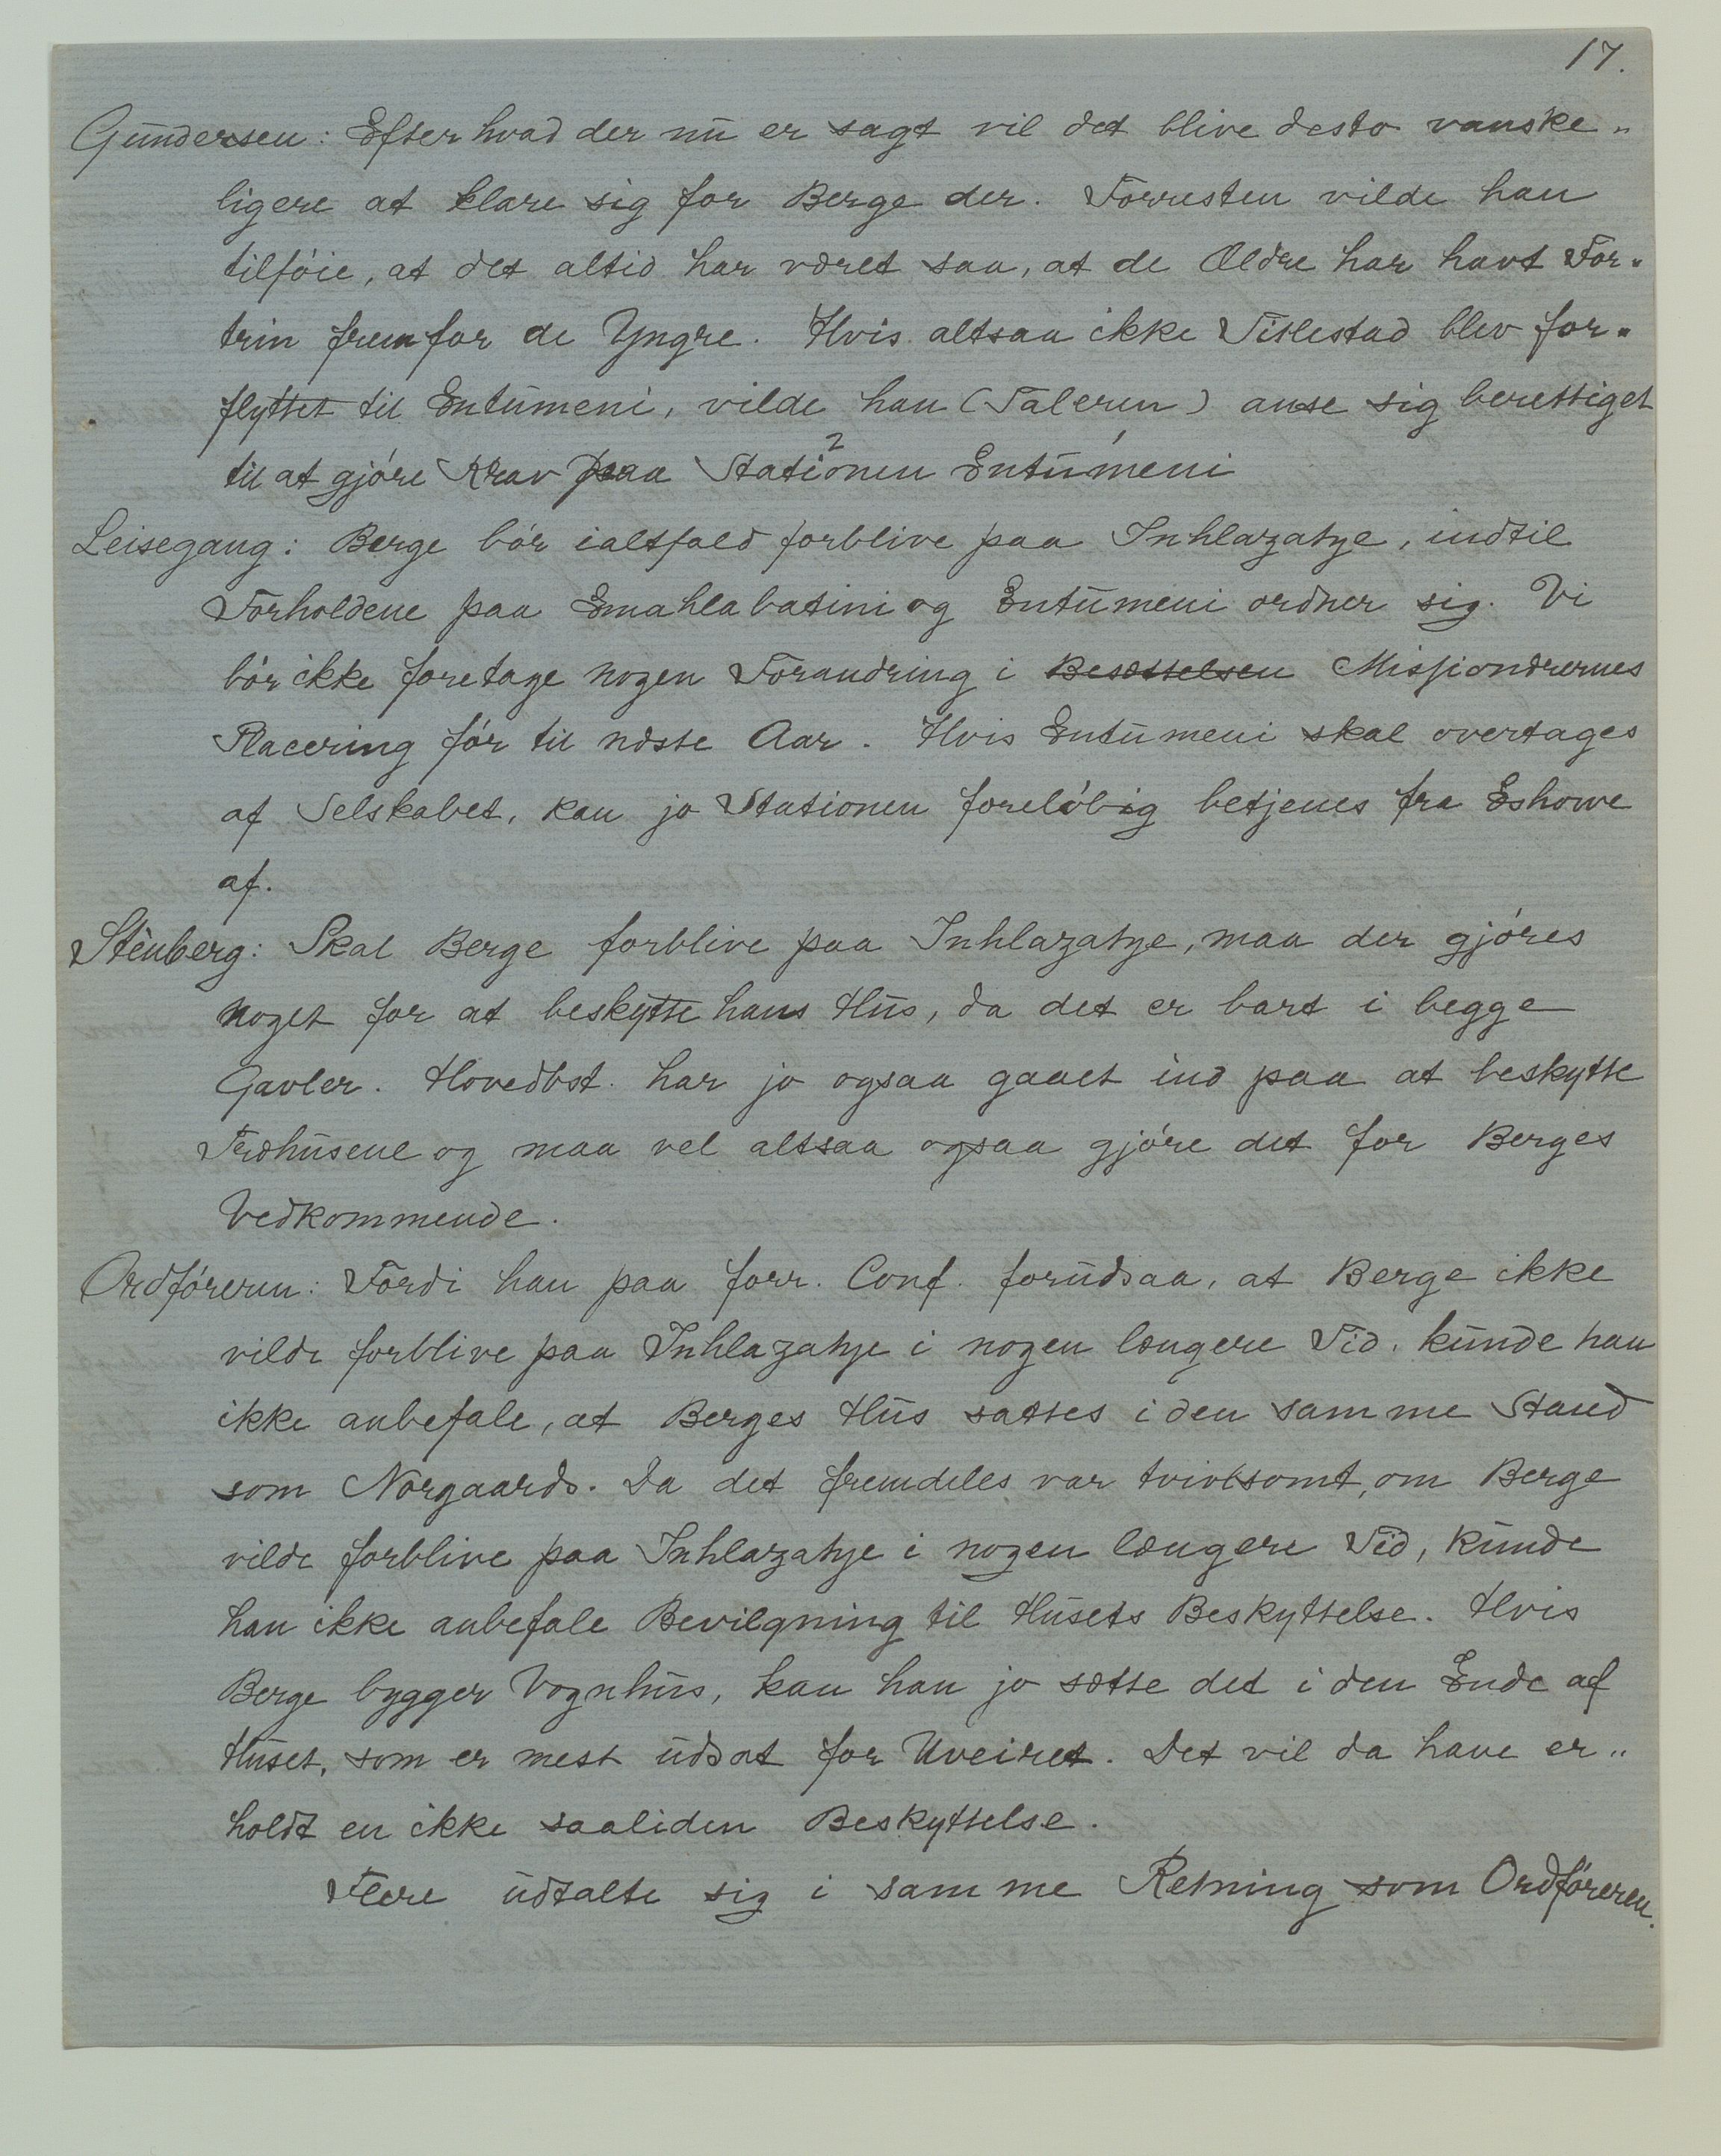 17.
Gundersen: Efter hvad der nu er sagt vil det blive desto vanske-
ligere at klare sig for Berge der. Forresten vilde han
tilføie, at det altid har været saa, at de Ældre har havt For-
trin fremfor de Yngre. Hvis altsaa ikke Titlestad blev for-
flyttet til Entumeni, vilde han (Taleren) anse sig berettiget
til at gjøre Krav paa Stationen 2 Entumeni 1
Leisegang: Berge bør ialtfald forblive paa Inhlazatye, indtil
Forholdene paa Emahlabatini og Entumeni ordner sig. Vi
bør ikke foretage nogen Forandring i Besættelsen Missionærernes
Placering før til næste Aar. Hvis Entumeni skal overtages
af Selskabet, kan jo Stationen foreløbig betjenes fra Eshowe
af.
Stenberg: Skal Berge forblive paa Inhlazatye, maa der gjøres
noget for at beskytte hans Hus, da det er bart i begge
Gavler. Hovedbst. har jo ogsaa gaaet ind paa at beskytte
Træhusene og maa vel altsaa ogsaa gjøre det for Berges
Vedkommende.
Ordføreren: Fordi han paa forr. Conf. forudsaa, at Berge ikke
vilde forblive paa Inhlazatye i nogen længere Tid, kunde han
ikke anbefale, at Berges Hus sattes i den samme Stand
som Norgaards. Da det fremdeles var tvivlsomt, om Berge
vilde forblive paa Inhlazatye i nogen længere Tid, kunde
han ikke anbefale Bevilgning til Husets Beskyttelse. Hvis
Berge bygger Vognhus, kan han jo sætte det i den Ende af
Huset, som er mest udsat for Uveiret. Det vil da have er-
holdt en ikke saaliden Beskyttelse.
Flere udtalte sig i samme Retning som Ordføreren.